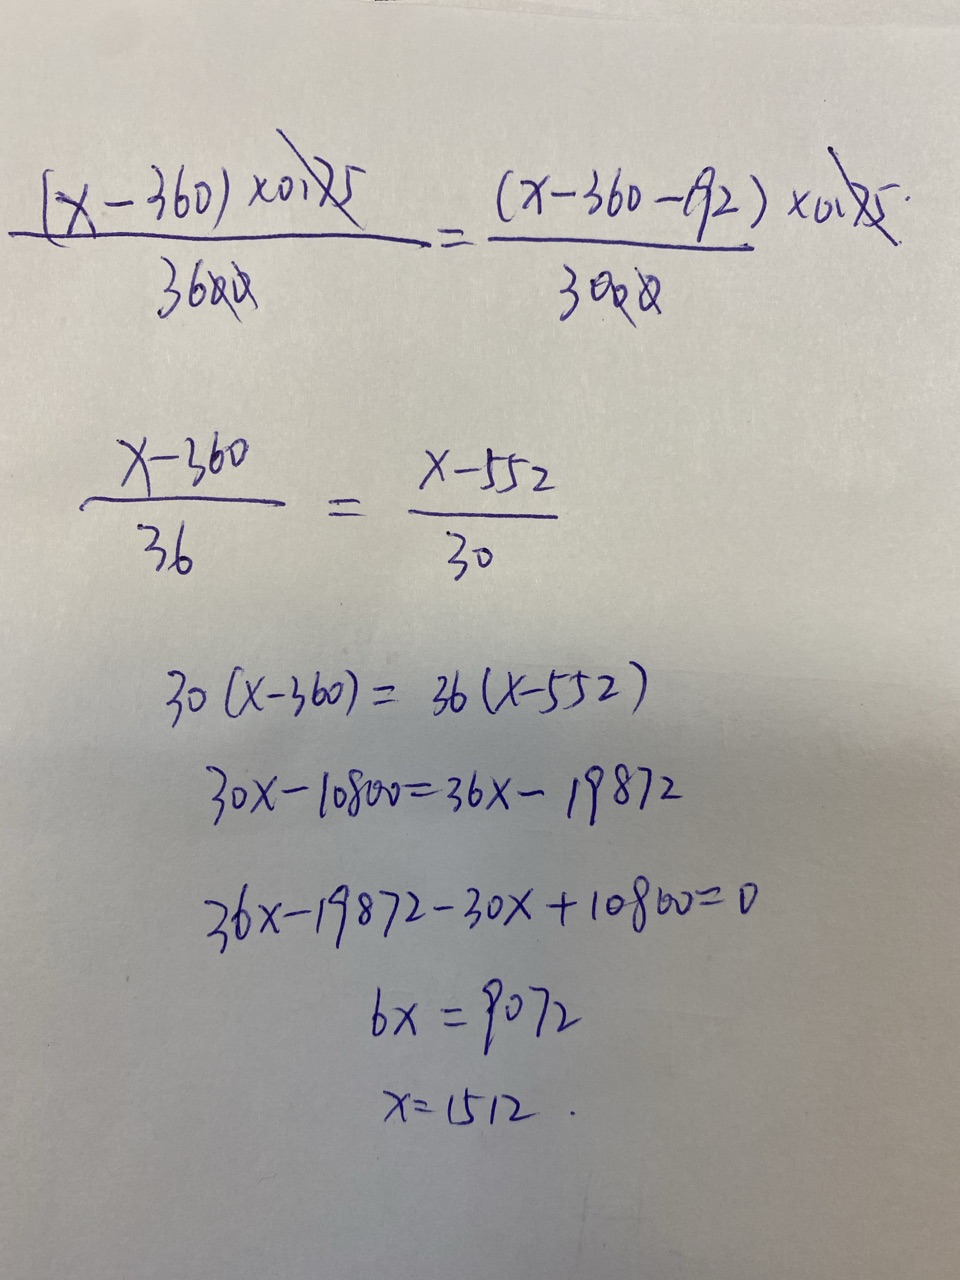 (x-360)×0.75 = (x-360-192)×0.75
3600 3000
x-360 = x-552
36 30
30(x-360)=36(x-552)
30x-10800=36x-19872
36x-19872-30x+10800=0
6x=9072
x=1512.